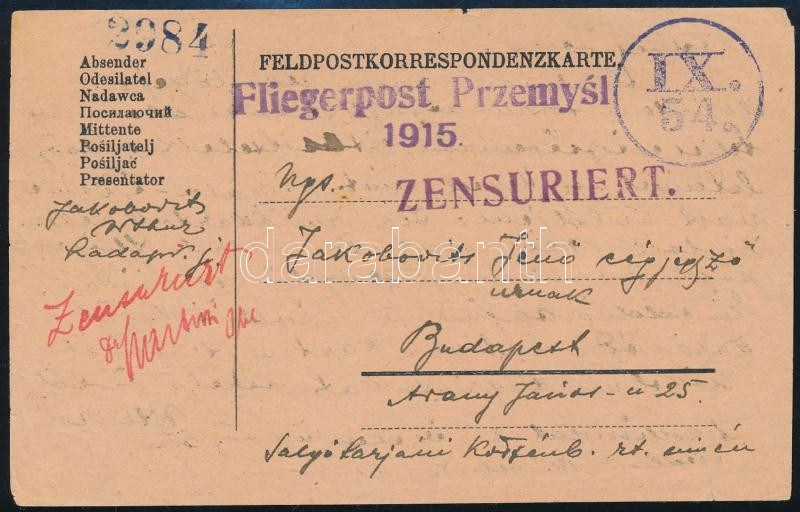 2984
Absender
Odesilatel
Nadawca
Посилаючий
Mittente
Pošiljatelj
Pošiljač
Presentator
FELDPOSTKORRESPONDENZKARTE.
Fliegerpost Przemyśl
1915.
IX.
54.
ZENSURIERT.
Ngs.
Jakobovits
Arthur
Jakobovits Jenő cégjegyző
urnak
Zensuriert
Budapest
Arany János-u 25.
Salgótarjáni Kőszénb. rt. címén
darabanth